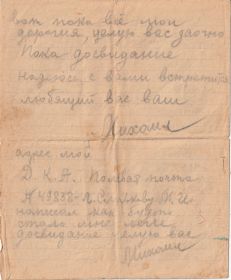 вот пока всё мои
дорогия, целую вас заочно
Пока досвидание
надеюс с вами встретится
любящий вас ваш
Михаил
адрес мой
Д.К.А. Полевая почта
№ 49888-
написал как будто
стало мне легче
досвидание целую вас
Михаил